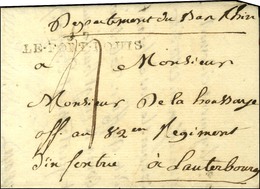 Departement du Bas Rhin
LE-FORT-LOUIS
a Monsieur
Monsieur De la
off. au 82em Regiment
d'infentrie a Lauterbourg